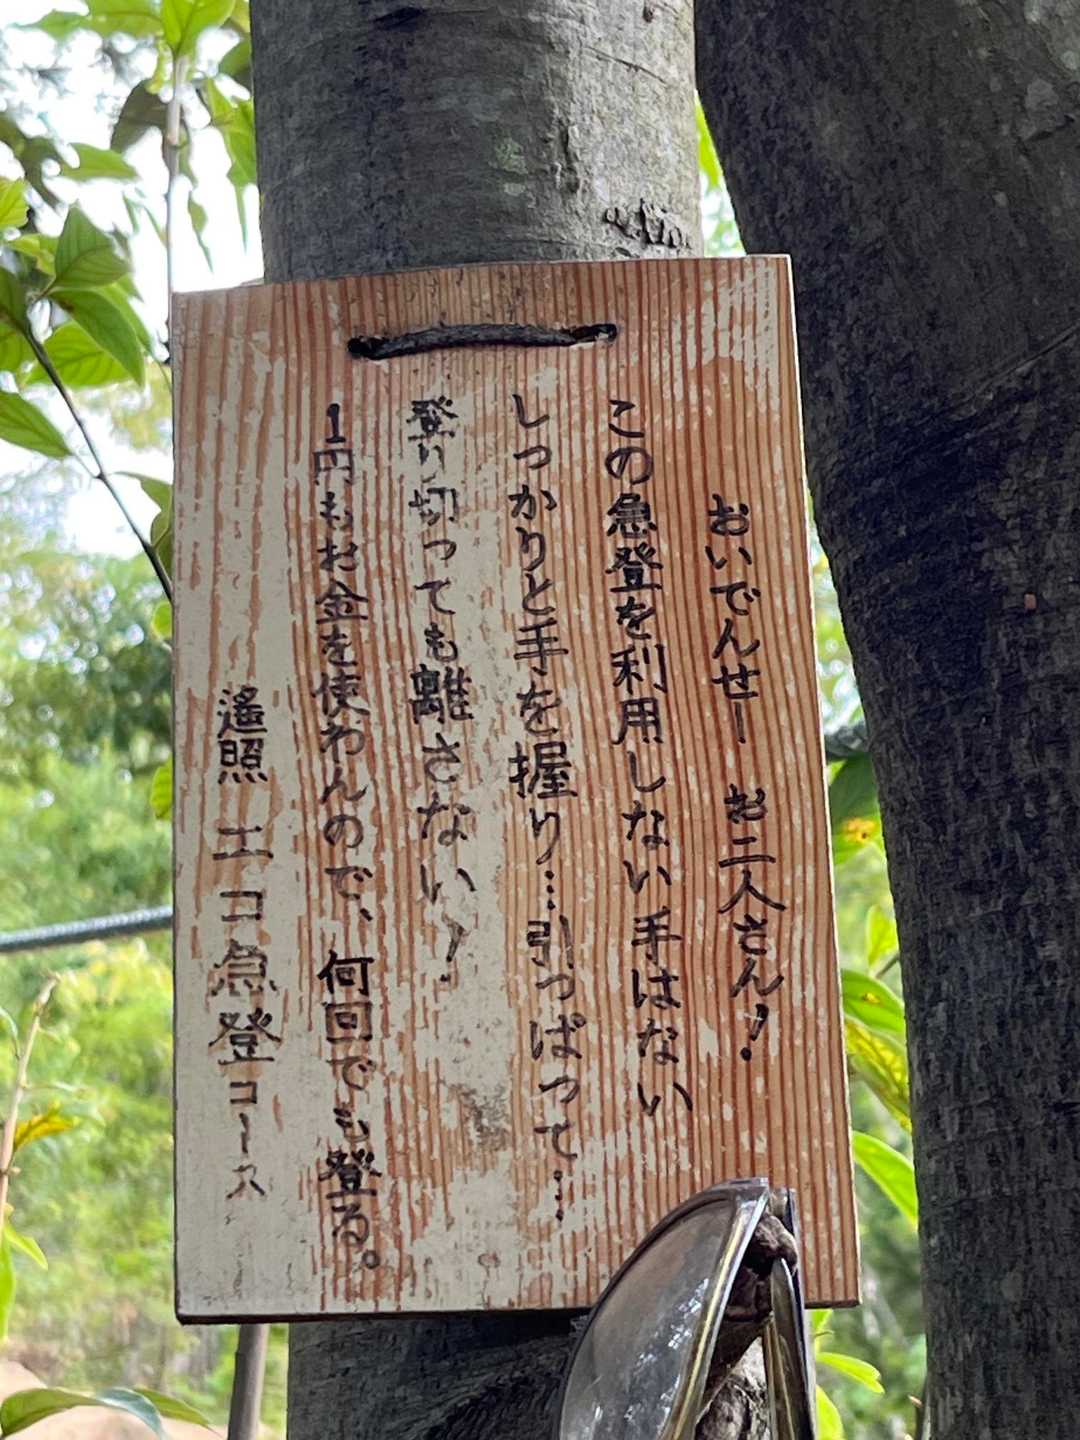 おいでんせー　お二人さん！
この急登を利用しない手はない
しっかりと手を握り…引っぱって…
登り切っても離さない！
１円もお金を使わんので、何回でも登る。
遙照　エコ急登コース